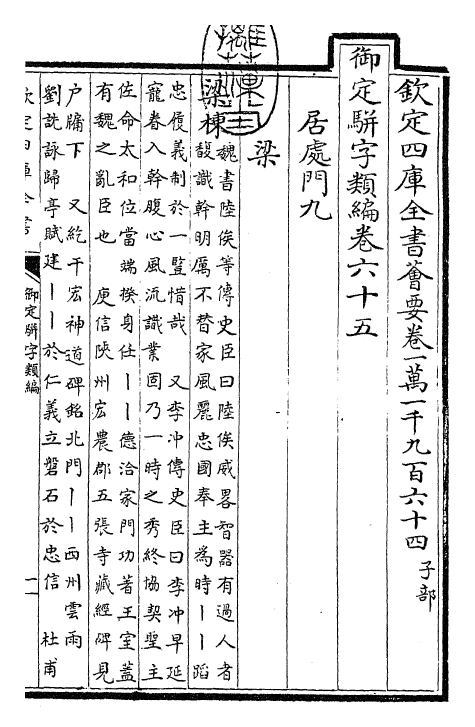 欽定四庫全書薈要卷一萬一千九百六十四 子部
御定駢字類編卷六十五
居處門九
梁
梁棟
魏書陸俟等傳史臣曰陸俟威畧智器有過人者
馥識幹明厲不替家風麗忠國奉主為時丨丨蹈
忠履義制於一豎惜哉 又李冲傳史臣曰李冲早延
寵眷入幹腹心風流識業固乃一時之秀終協契聖主
佐命太和位當端揆身任丨丨德洽家門功著王室蓋
有魏之亂臣也 庾信陜州宏農郡五張寺藏經碑見
户牖下 又紇干宏神道碑銘北門丨丨西州雲雨
劉詵詠歸亭賦建丨丨於仁義立磐石於忠信 杜甫
欽定四庫全書
御定駢字類編
一